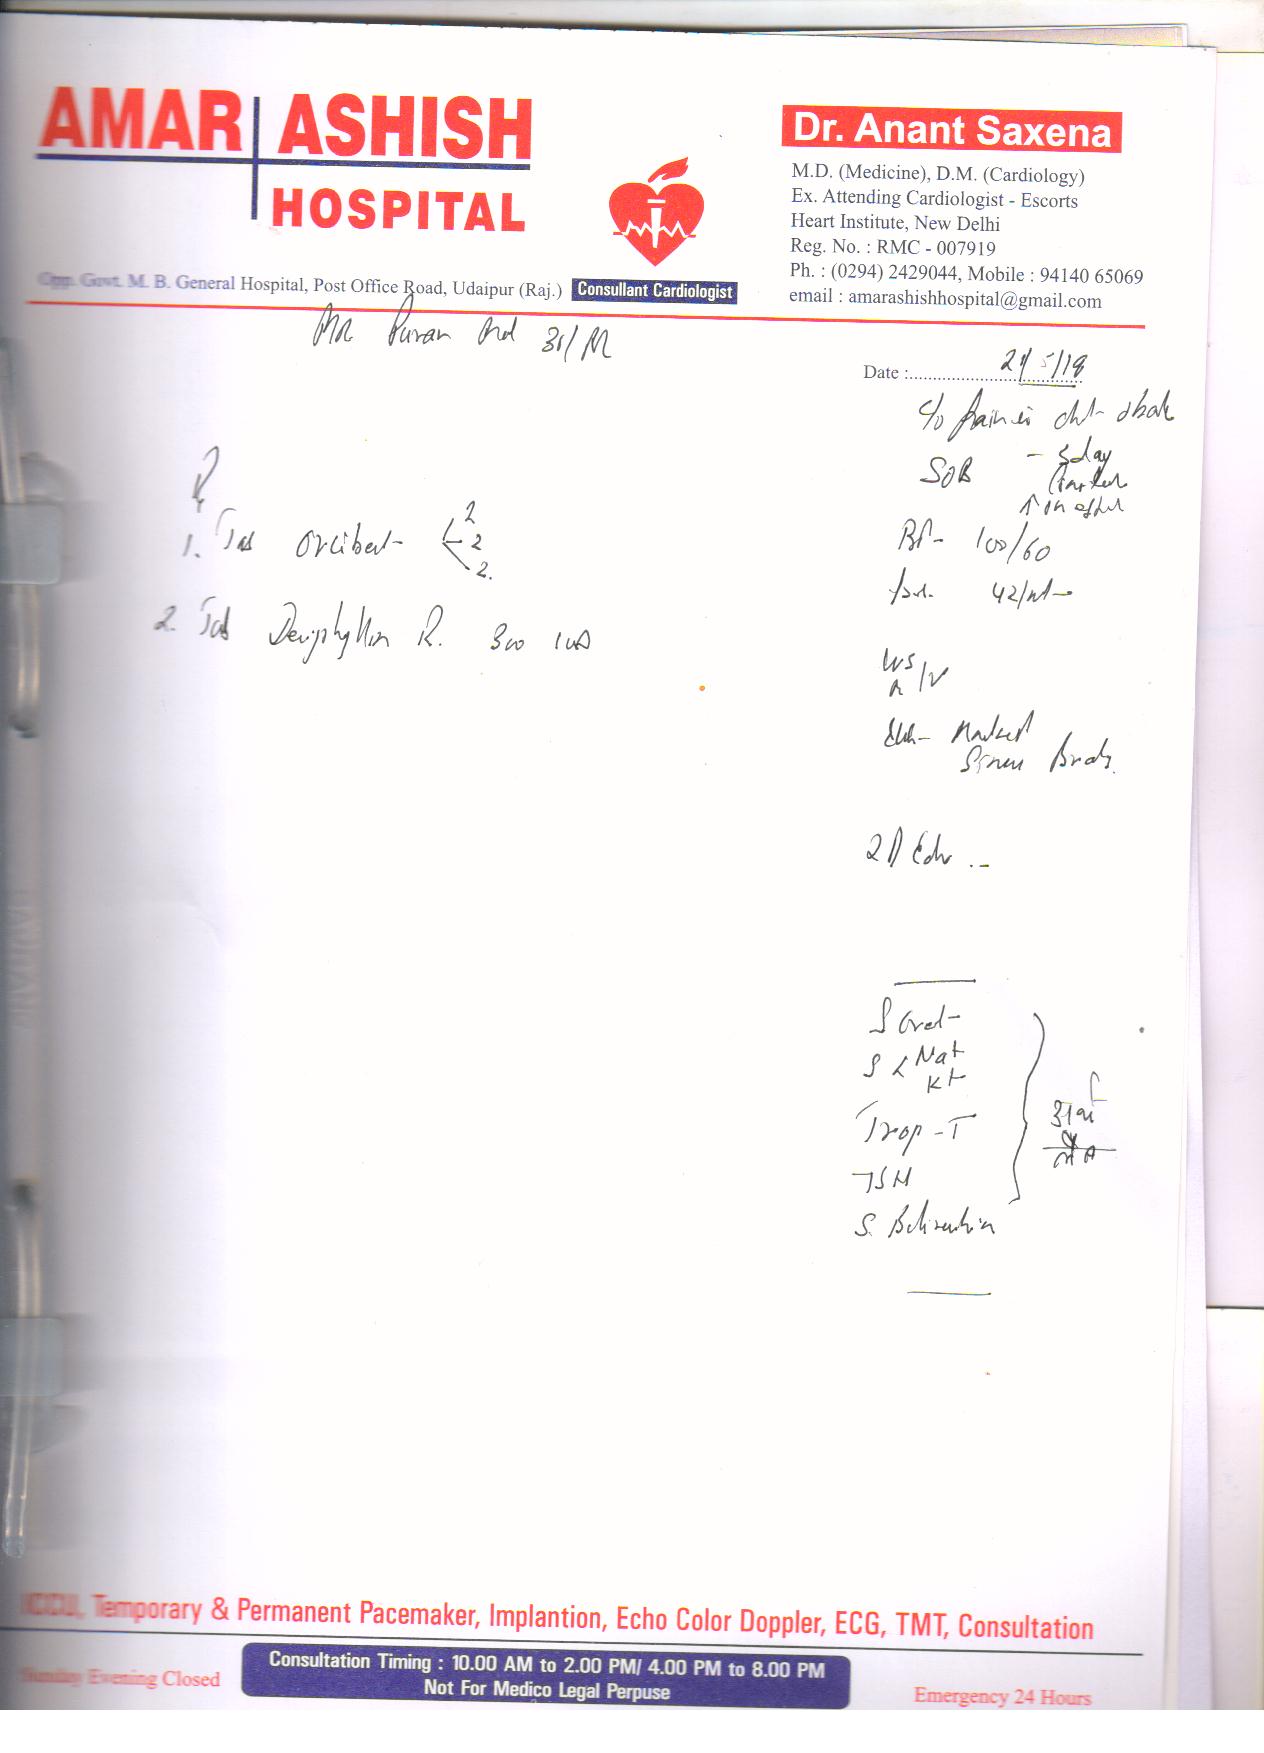 AMAR ASHISH
HOSPITAL
Opp. Govt. M. B. General Hospital, Post Office Road, Udaipur (Raj.)
Consullant Cardiologist
Dr. Anant Saxena
M.D. (Medicine), D.M. (Cardiology)
Ex. Attending Cardiologist - Escorts
Heart Institute, New Delhi
Reg. No. : RMC - 007919
Ph. : (0294) 2429044, Mobile : 94140 65069
email : amarashishhospital@gmail.com
Mr Puran 31/M
Date :
c/o pain in
SOB - 3day
BP - 100/60
42/
1. Tab
2
2
2.
2. Tab Deriphyllin R. 300
Marked
Sinus Brady.
2D Echo
S Creat
S < Na+
K+
Trop - T
TSH
S.
ICCU, Temporary & Permanent Pacemaker, Implantion, Echo Color Doppler, ECG, TMT, Consultation
Sunday Evening Closed
Consultation Timing : 10.00 AM to 2.00 PM/ 4.00 PM to 8.00 PM
Not For Medico Legal Perpuse
Emergency 24 Hours